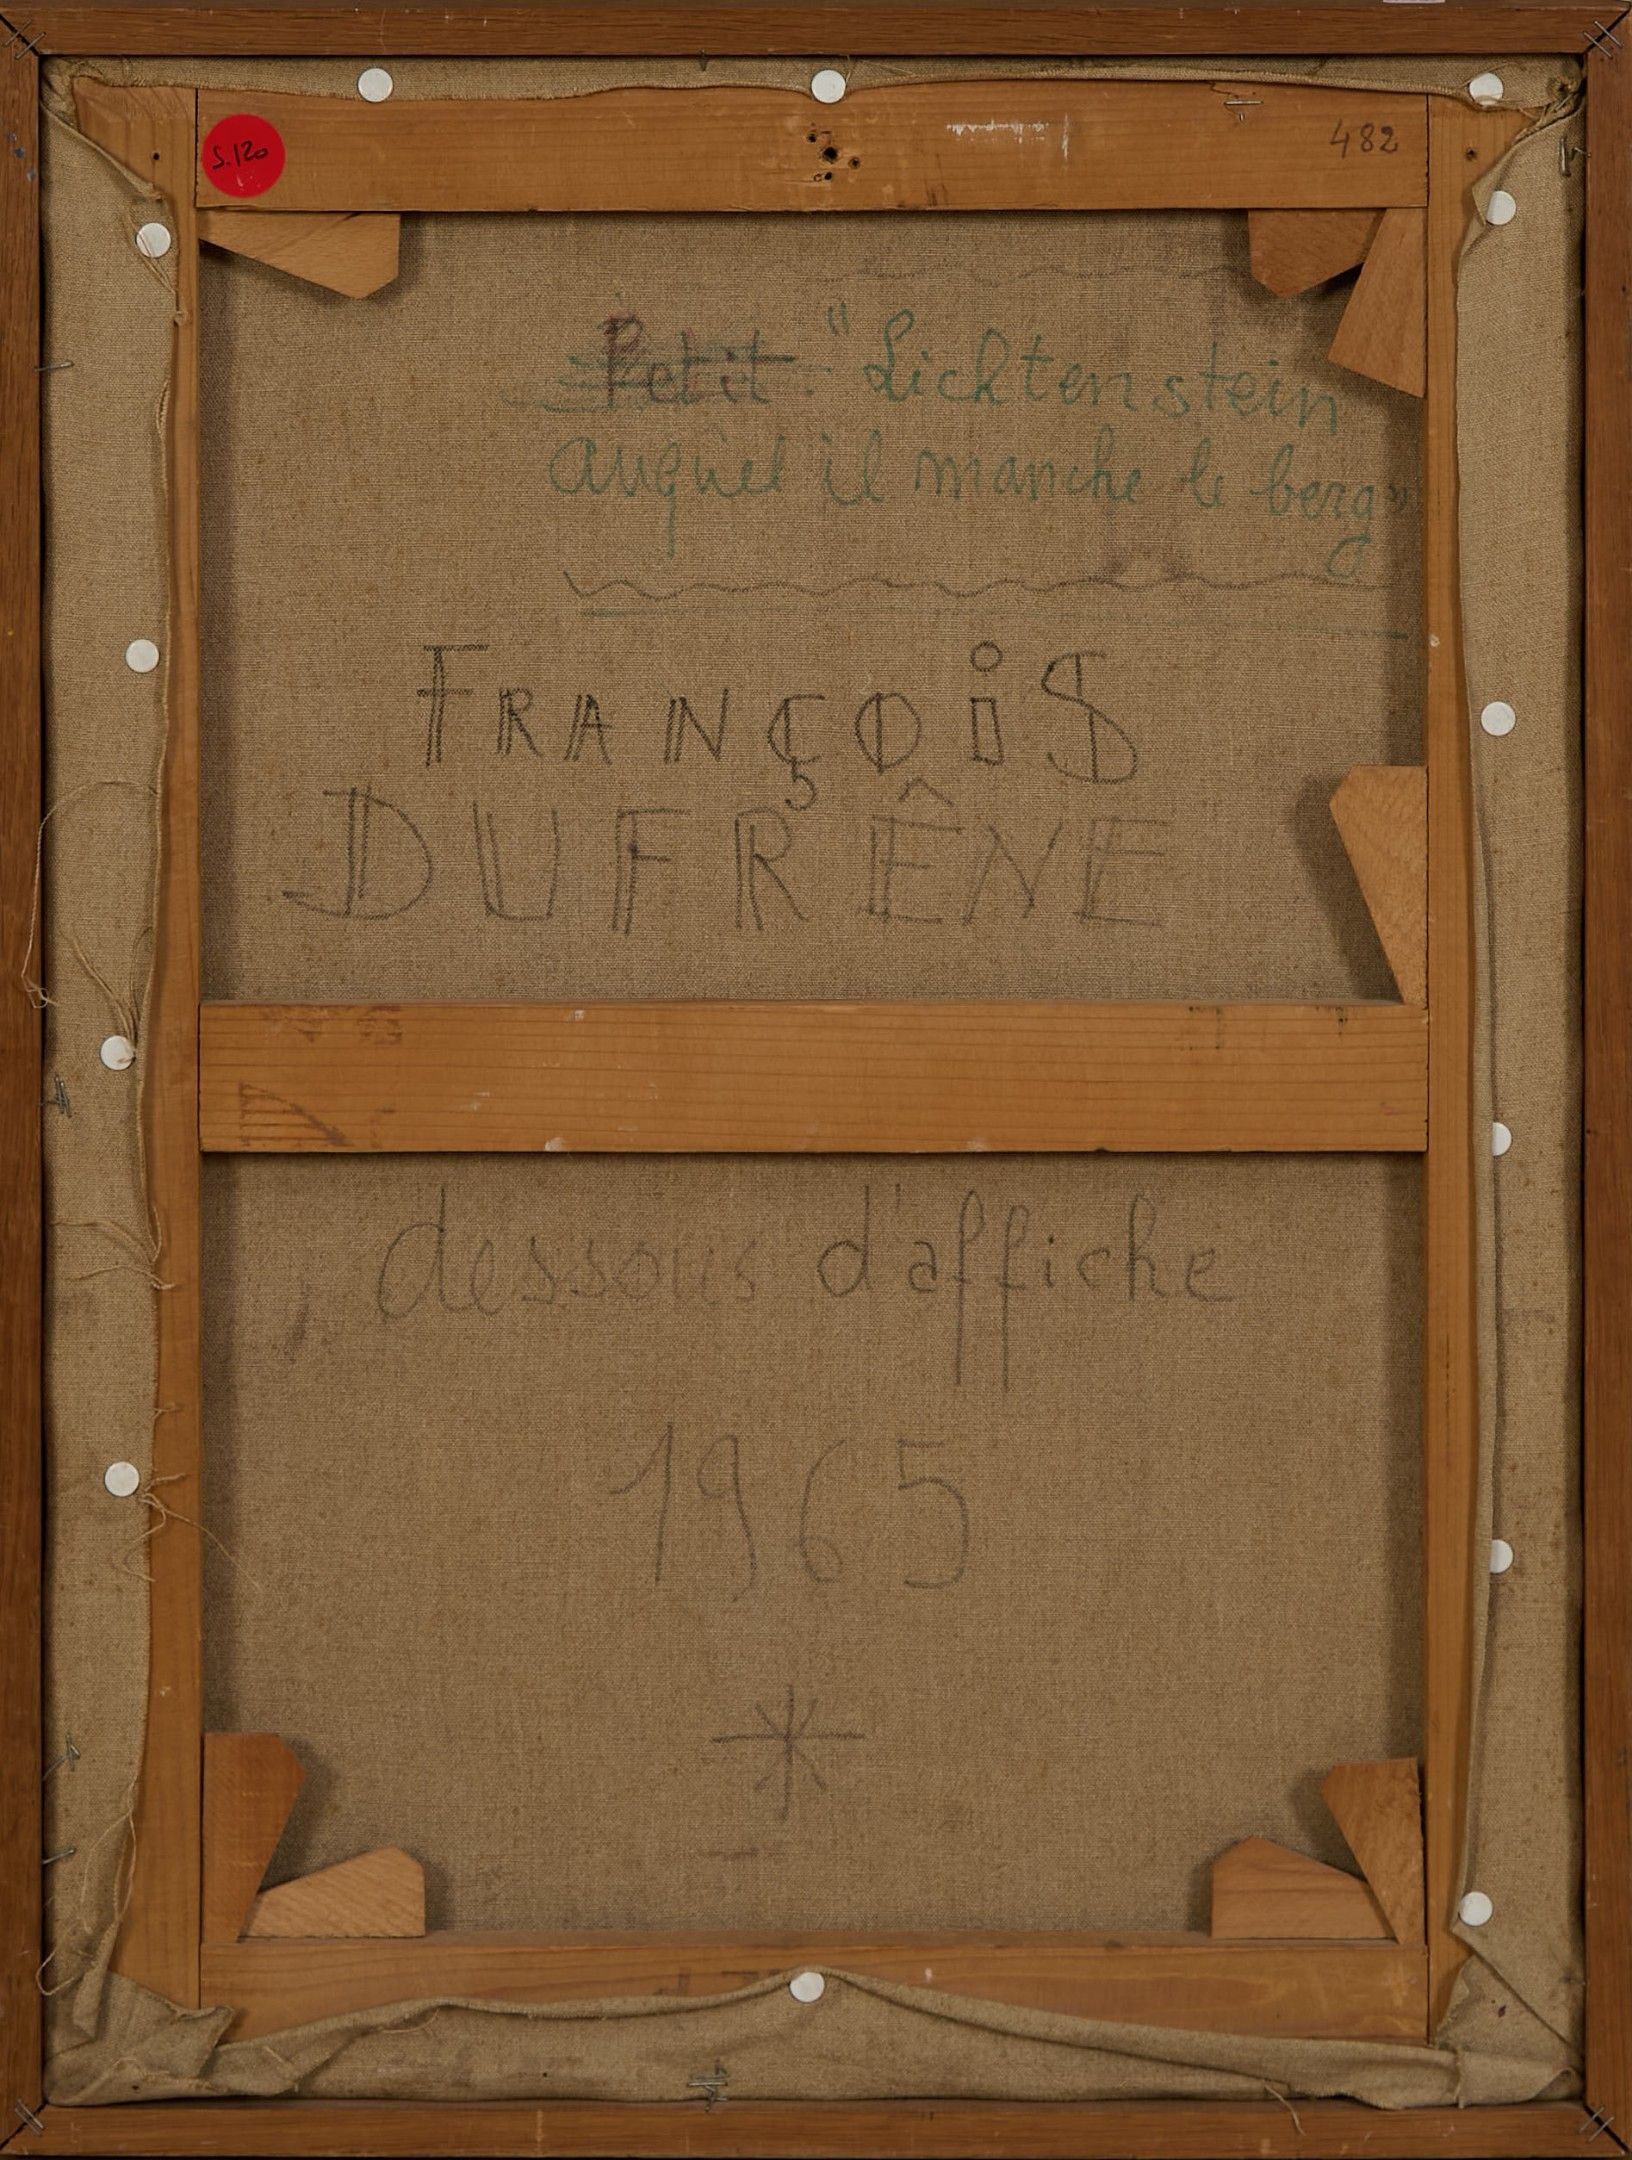 S.120
482
Petit "Lichtenstein
auquel il manche le berg"
FRANÇOiS
DUFRÊNE
dessous d'affiche
1965
*